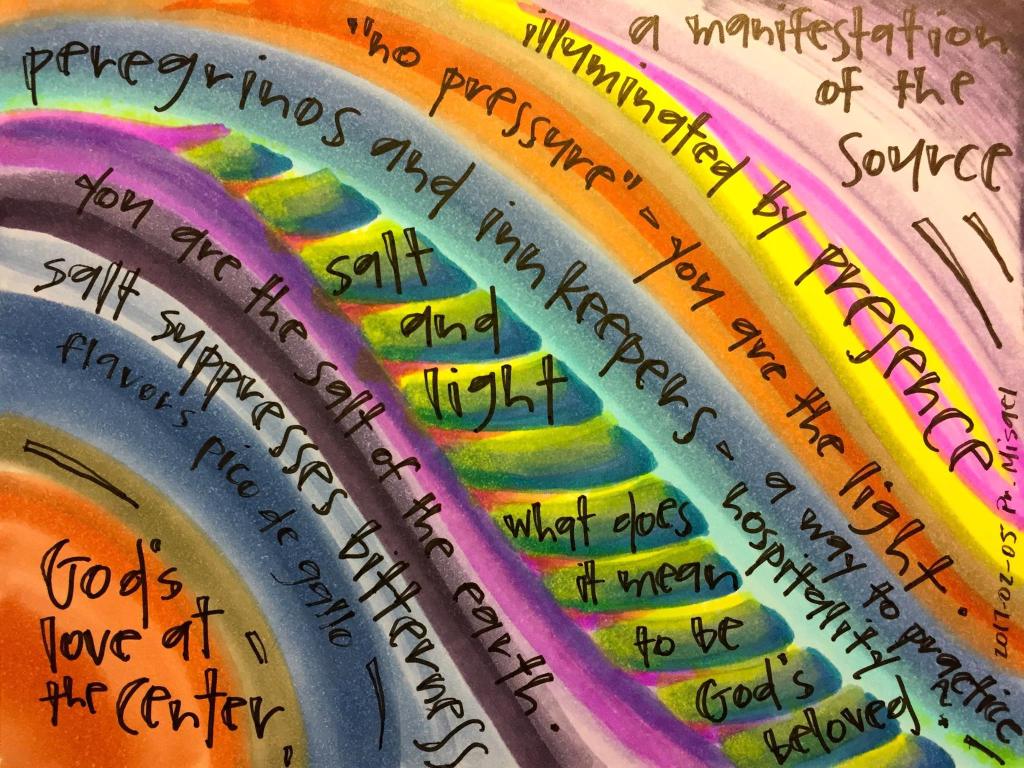 a manifestation
of the
Source
illuminated by presence
"no pressure" - you are the light.
peregrinos and innkeepers - a way to practice
hospitality
salt
and
light
what does
it mean
to be
God's
beloved?
You are the salt of the earth.
salt suppresses bitterness
flavors pico de gallo
God's
love at
the center
2017-02-05 Pn. Misael